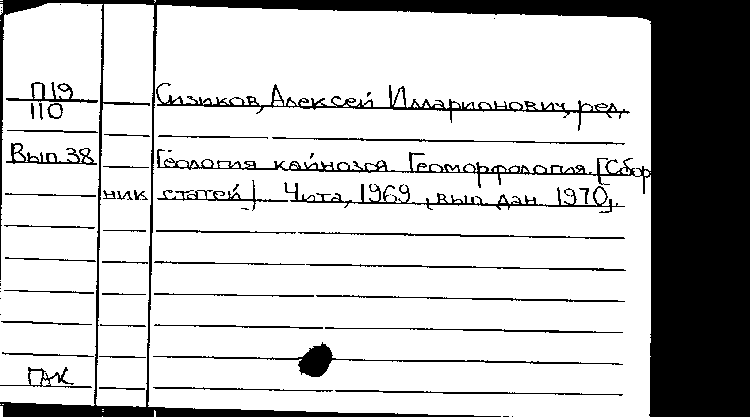 П19 Сизиков, Алексей Илларионович, ред.
110
Вып. 38 Геология кайнозоя. Геоморфология. [Сбор
ник статей]. Чита, 1969, вып. дан. 1970.
ГАК